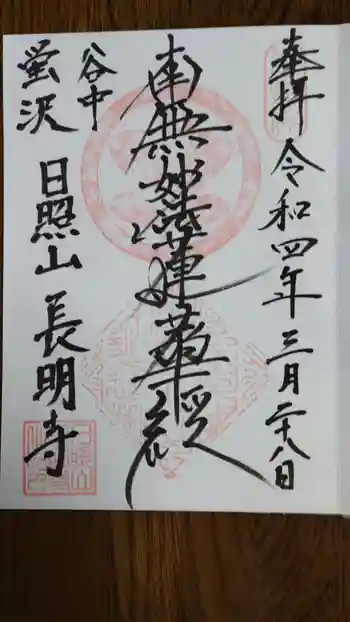 奉拝
令和四年三月二十八日
南無妙法蓮華経
谷中
蛍沢
日照山長明寺